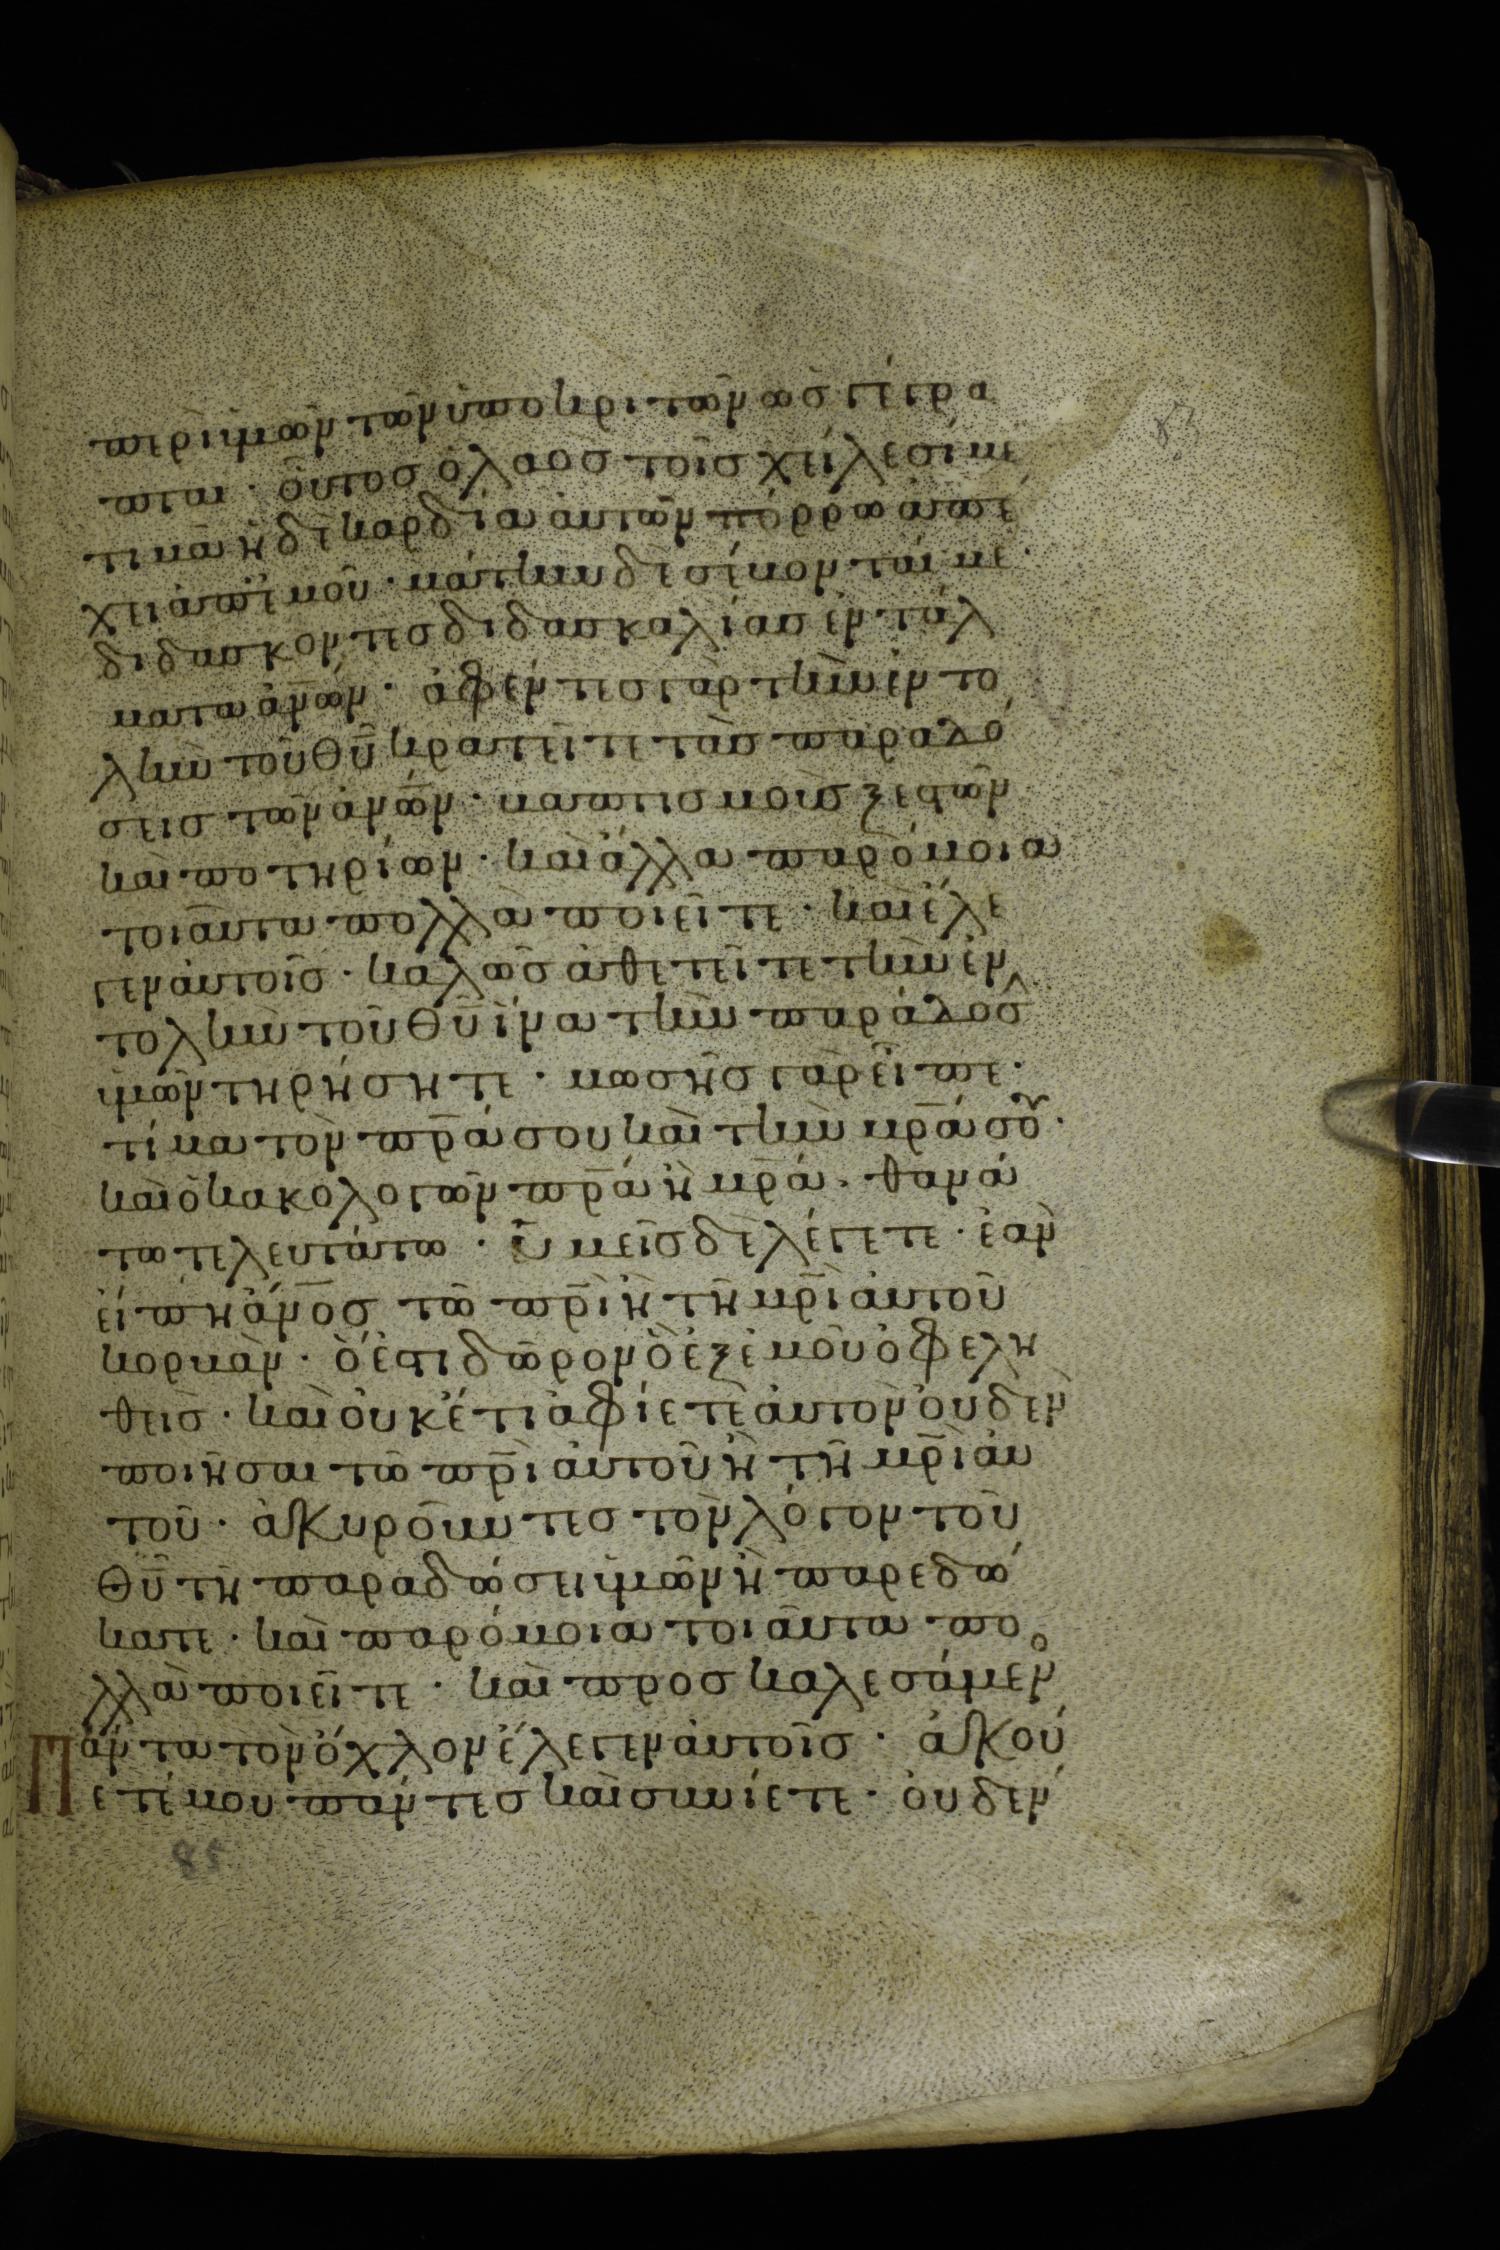 περὶ ὑμῶν τῶν ὑποκριτῶν ὡς γέγρα
πται· οὗτος ὁ λαὸς τοῖς χείλεσί με
τιμᾶ ἡ δὲ καρδία αὐτῶν πόρρω ἀπέ
χει ἀπ' ἐμοῦ· μάτην δὲ σέβονταί με·
διδάσκοντες διδασκαλίας ἐντάλ
ματα ἀν̅ω̅ν· ἀφέντες γὰρ τὴν ἐντο
λὴν τοῦ θ̅υ̅ κρατεῖτε τὰς παραδό
σεις τῶν ἀν̅ω̅ν· βαπτισμοὺς ξεστῶν
καὶ ποτηρίων· καὶ ἄλλα παρόμοια
τοιαῦτα πολλὰ ποιεῖτε· καὶ ἔλε
γεν αὐτοῖς· καλῶς ἀθετεῖτε τὴν ἐν
τολὴν τοῦ θ̅υ̅ ἵνα τὴν παράδοσ
ὑμῶν τηρήσητε· μωσῆς γὰρ εἶπε·
τίμα τὸν π̅ρ̅α σου καὶ τὴν μ̅ρ̅α σου·
καὶ ὁ κακολογῶν π̅ρ̅α ἢ μ̅ρ̅α· θανά
τω τελευτάτω· ὑμεῖς δὲ λέγετε· ἐὰν
εἴπη ἄν̅ο̅ς τῶ π̅ρ̅ι ἢ τῆ μ̅ρ̅ι αὐτοῦ
κορβὰν· ὅ ἐστι δῶρον ὃ ἐξ ἐμοῦ ὀφελη
θεὶς· καὶ οὐκέτι ἀφίετε αὐτὸν οὐδὲν
ποιῆσαι τῶ π̅ρ̅ι αὐτοῦ ἢ τῆ μ̅ρ̅ι αὐ
τοῦ· ἀκυροῦντες τὸν λόγον τοῦ
θ̅υ̅ τῆ παραδόσει ὑμῶν ἧ παρεδώ
κατε· καὶ παρόμοια τοιαῦτα πο
λλὰ ποιεῖτε· καὶ προσκαλεσάμενο
πάντα τὸν ὄχλον ἔλεγεν αὐτοῖς· ἀκού
ετέ μου πάντες καὶ συνίετε· οὐδέν